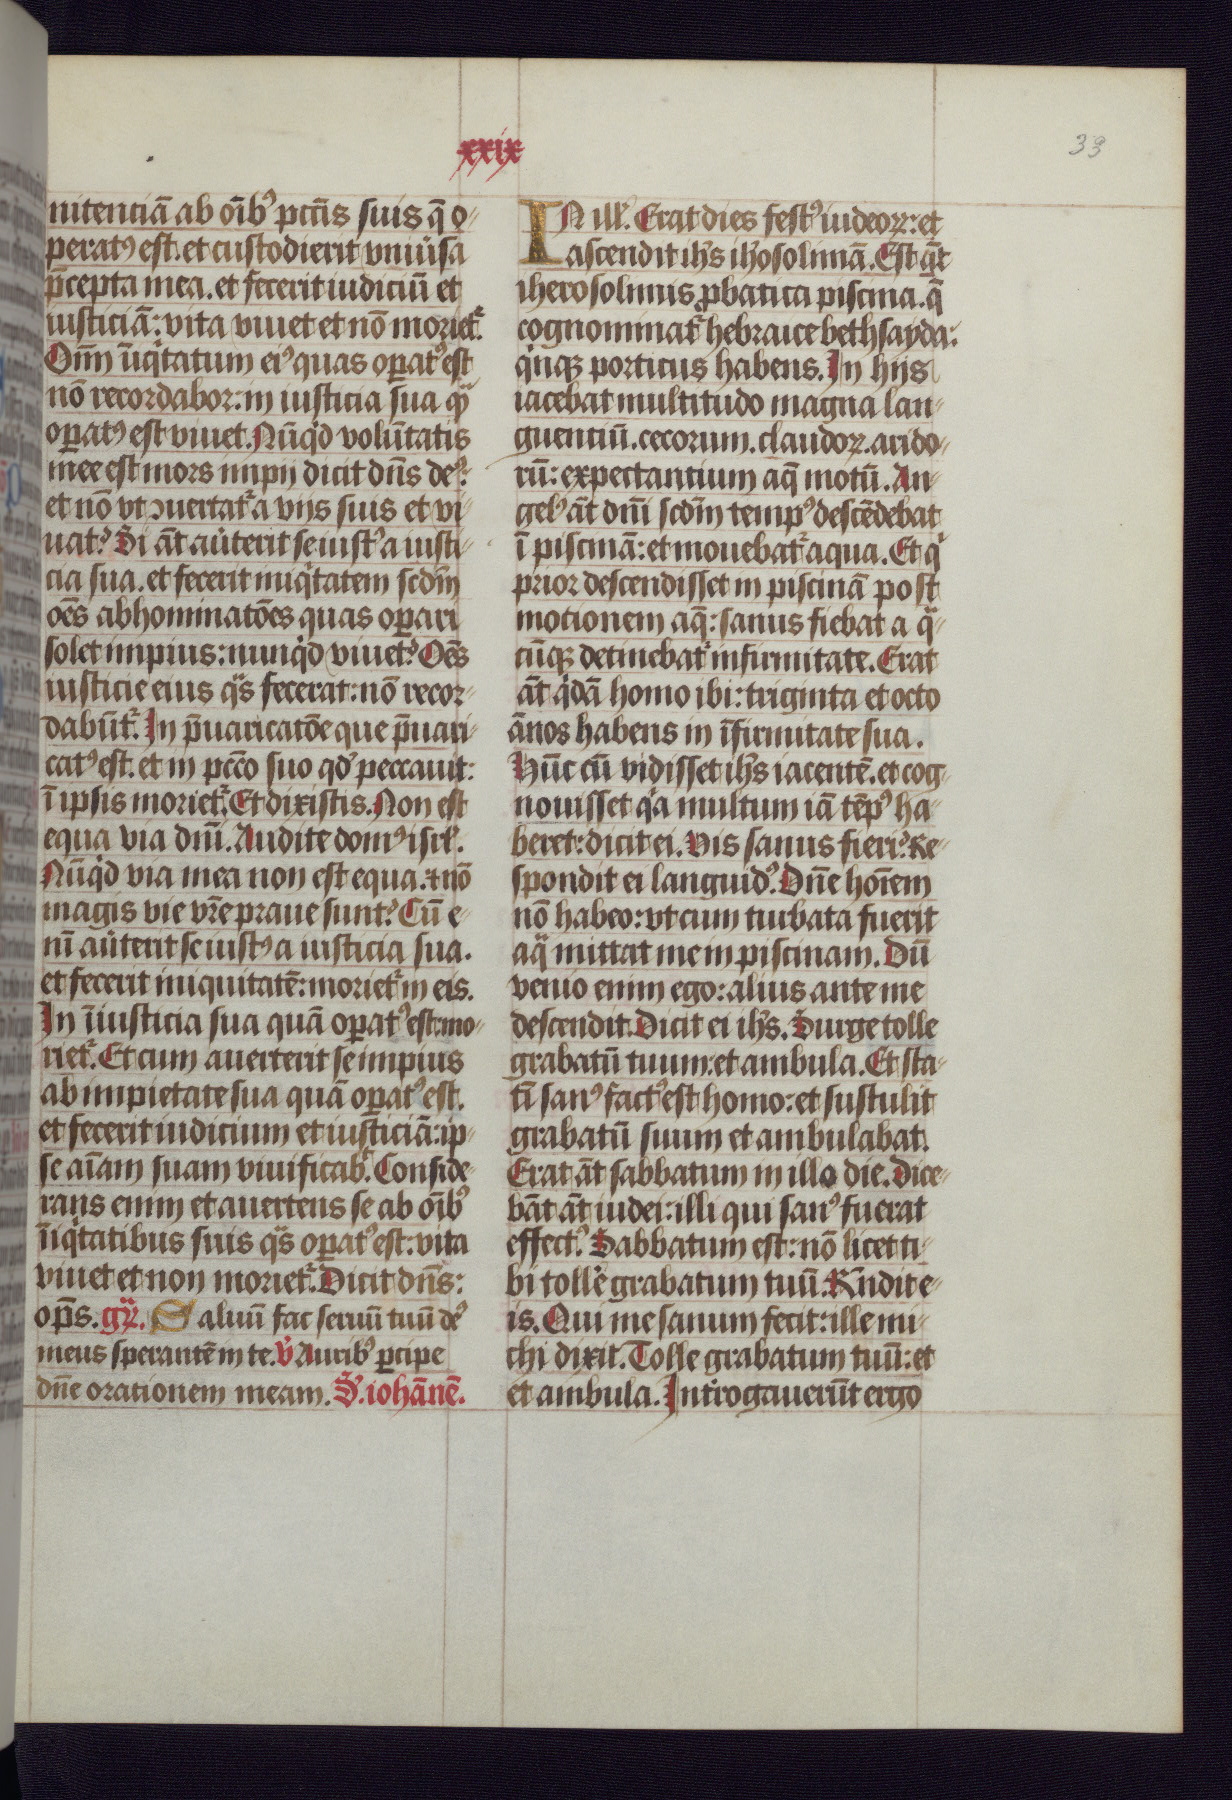 xxix
33
nitenciā ab oībꝰ pctīs suis q̄ o-
peratꝰ est. et custodierit vniu̓sa
p̄cepta mea. et fecerit iudiciū et
iusticiā: vita viuet et nō morietᷣ.
Oīm īiqͥtatum eiꝰ quas oꝑatꝰ est
nō recordabor: in iusticia sua qᷓ
oꝑatꝰ est viuet. Nūqͥd volūtatis
mee est mors impij dicit dn̄s deꝰ:
et nō vt ꝯuertatᷣ a vijs suis et vi-
uat? Si āt au̓terit se iustꝰ a iusti-
cia sua. et fecerit iniqͥtatem scdm̄
oēs abhominatōes quas oꝑari
solet impius: nunqͥd viuet? Oēs
iusticie eius qᷓs fecerat: nō recor-
dabūtᷣ. In p̄uaricatōe que p̄uari-
catꝰ est. et in pccō suo qd̓ peccauit:
ī ipsis morietᷣ. Et dixistis. Non est
equa via dn̄i. Audite domꝰ isrl̓.
Nūqͥd via mea non est equa. ⁊ nō
magis vie vr̄e praue sunt? Cū e-
nī au̓terit se iustꝰ a iusticia sua.
et fecerit iniquitatē: morietᷣ in eis.
In īiusticia sua quā oꝑatꝰ est: mo-
rietᷣ. Et cum auerterit se impius
ab impietate sua quā oꝑatꝰ est.
et fecerit iudicium et iusticiā: ip-
se aīam suam viuificabᷣ. Conside-
rans enim et auertens se ab oībꝰ
īiqͥtatibus suis qᷓs oꝑatꝰ est: vita
viuet et non morietᷣ. Dicit dn̄s:
op̄s. gr̄. Saluū fac seruū tuū deꝰ
meus sperantē in te. V̓ Auribꝰ ꝑcipe
dn̄e orationem meam. S̓. iohānē.
IN ill̓. Erat dies festꝰ iudeoꝝ: et
ascendit ih̄s ih̓osolimā. Est aūt
iherosolimis ꝓbatica piscina. q̄
cognominatᷣ hebraice bethsayda:
qͥnqꝫ porticus habens. In hijs
iacebat multitudo magna lan-
guentiū. cecorum. claudoꝝ. arido-
rū: expectantium aq̄ motū. An-
gelꝰ āt dn̄i scdm̄ tempꝰ descēdebat
ī piscinā: et mouebatᷣ aqua. Et qͥ
prior descendisset in piscinā post
motionem aq̄: sanus fiebat a qᷓ-
cūqꝫ detinebatᷣ infirmitate. Erat
āt qͥdā homo ibi: triginta et octo
ānos habens in īfirmitate sua.
Hūc cū vidisset ih̄s iacentē. et cog-
nouisset qͥa multum iā tēpꝰ ha-
beret: dicit ei. Vis sanus fieri? Re-
spondit ei languidꝰ. Dn̄e hoīem
nō habeo: vt cum turbata fuerit
aqᷓ mittat me in piscinam. Dū
venio enim ego: alius ante me
descendit. Dicit ei ih̄s. Surge tolle
grabatū tuum: et ambula. Et sta-
tī sanꝰ factꝰ est homo: et sustulit
grabatū suum et ambulabat.
Erat āt sabbatum in illo die. Dice-
bāt āt iudei: illi qui sanꝰ fuerat
effectꝰ. Sabbatum est: nō licet ti-
bi toll̓e grabatum tuū. Rn̄dit e-
is. Qui me sanum fecit: ille mi-
chi dixit. Tolle grabatum tuū: et
et ambula. Int̓rogauerūt ergo